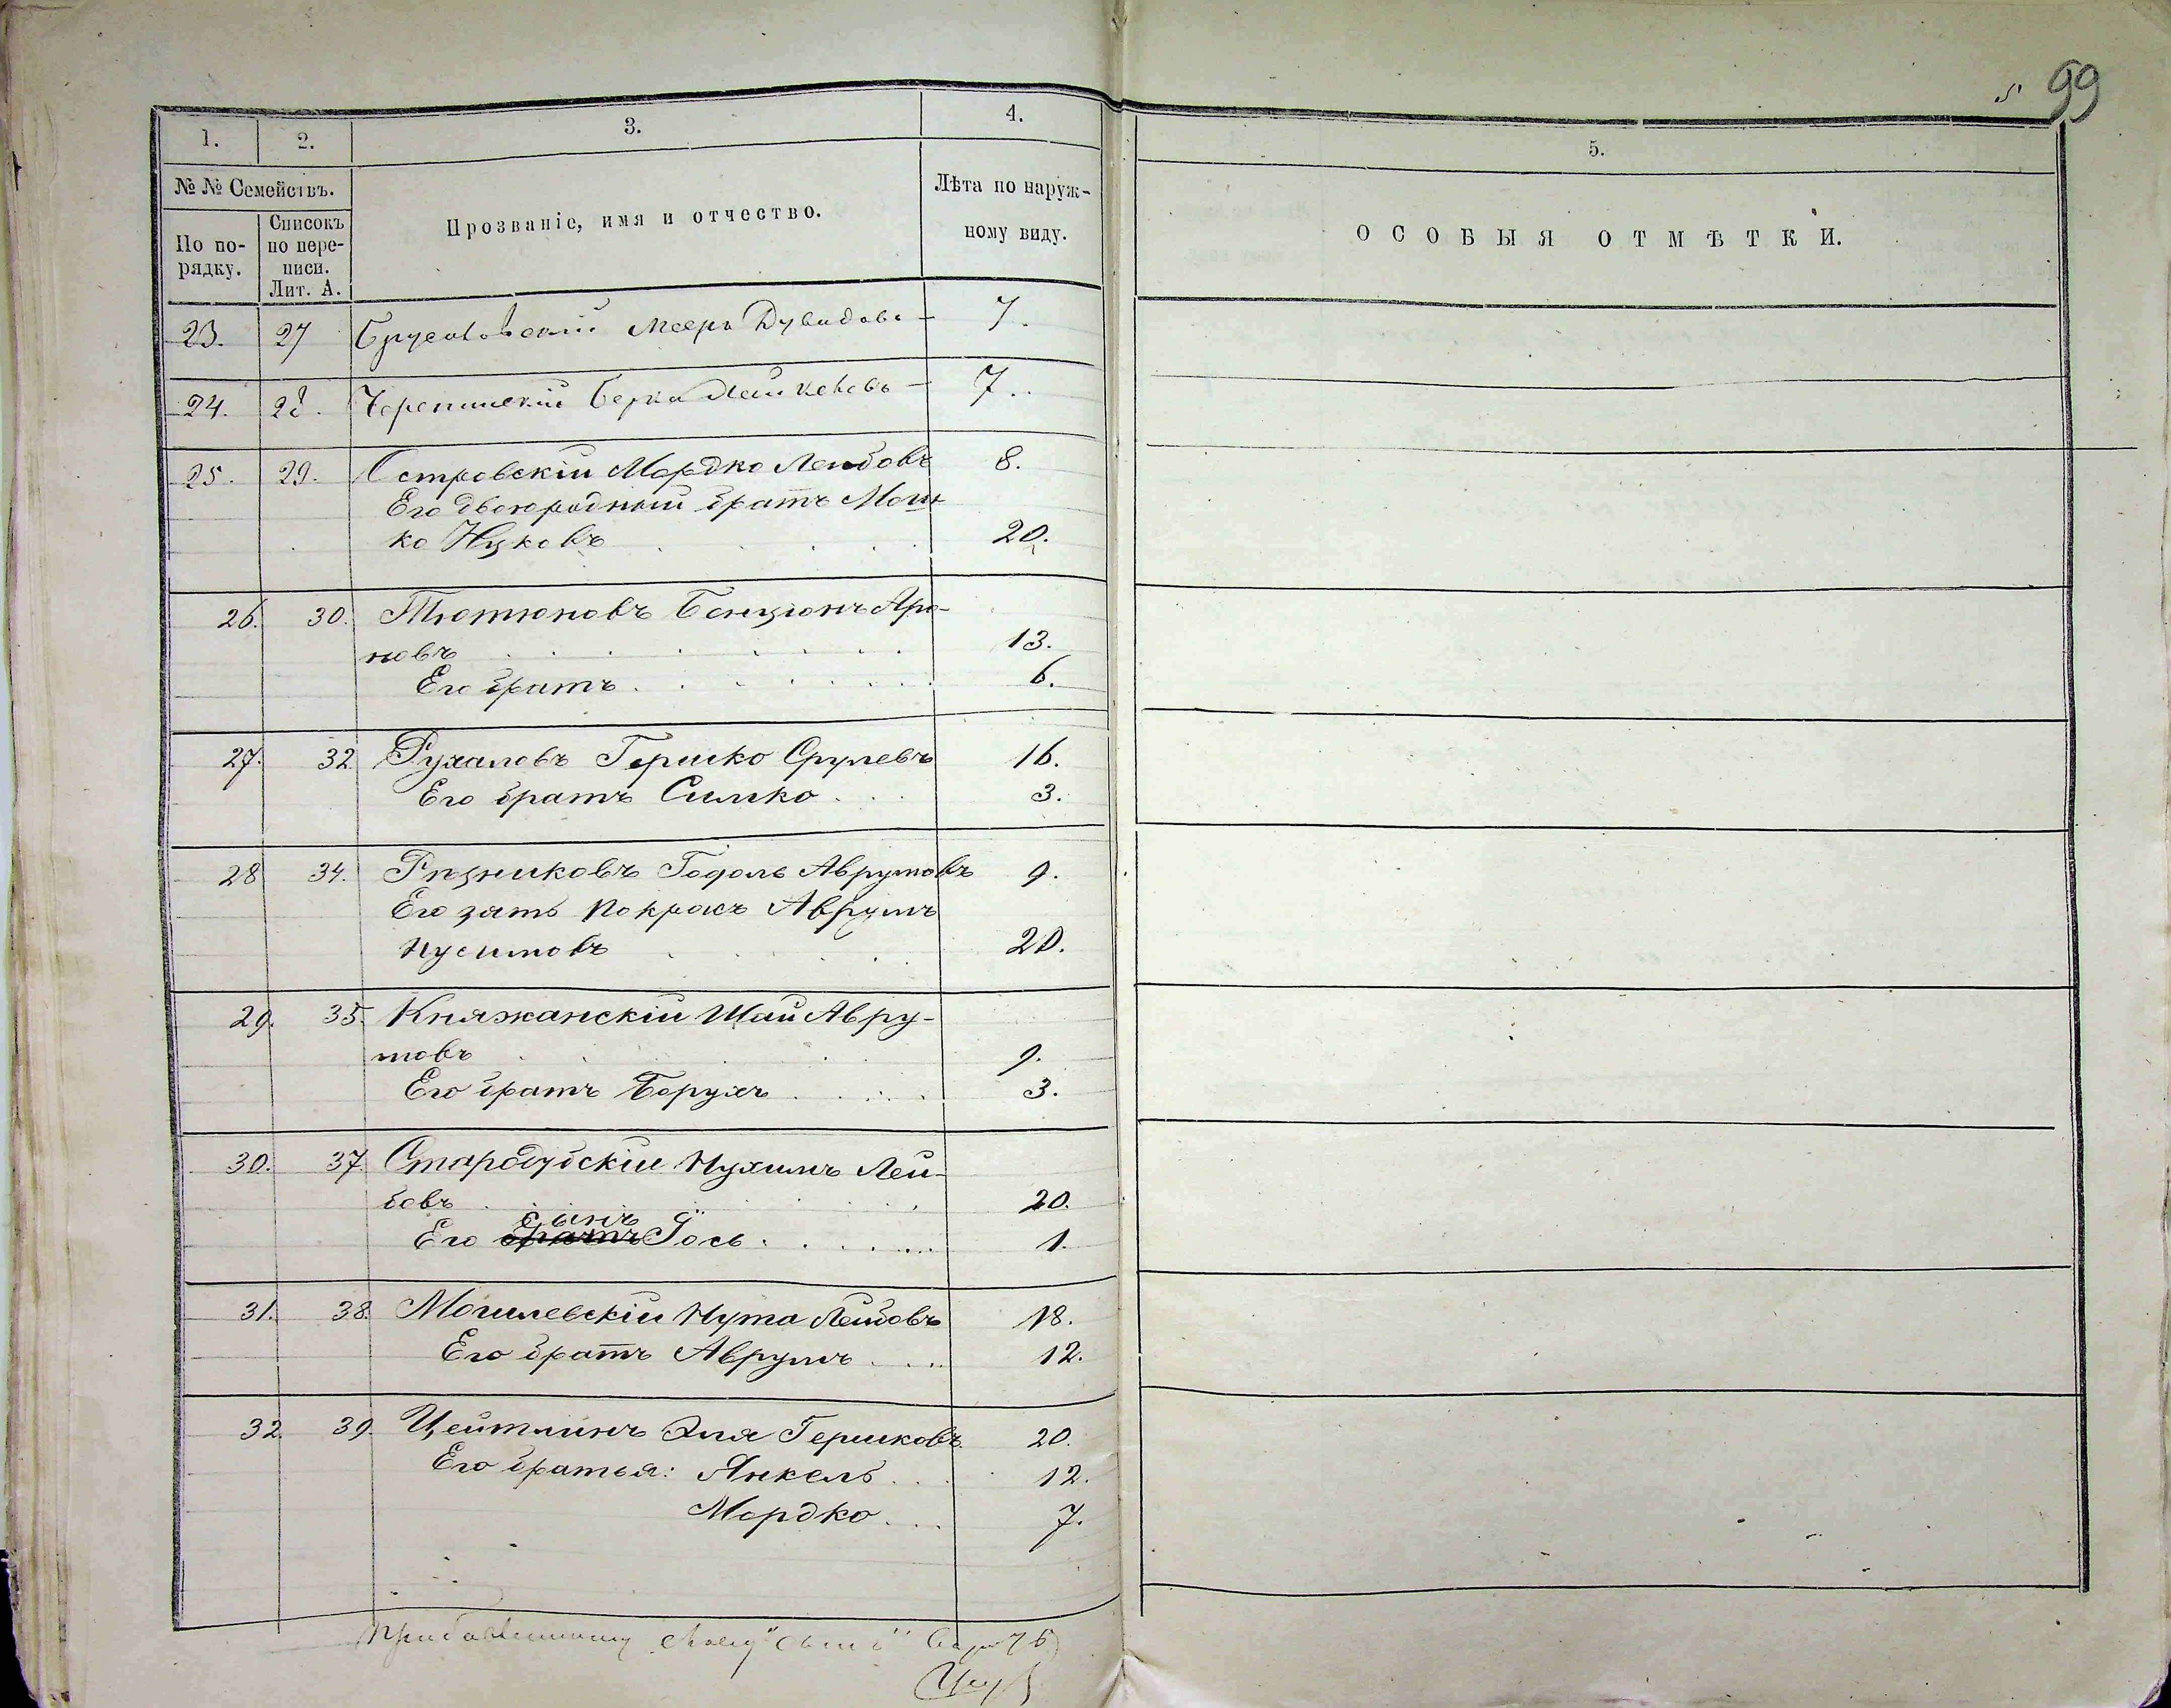 5 99
1. 2. 3. 4. 5.
№ № Семействъ.
По по-
рядку.
Списокъ
по пере-
писи.
Лит. А.
Прозваніе, имя и отчество.
Лѣта по наруж-
ному виду.
ОСОБЫЯ ОТМѢТКИ.
23. 27 Мееръ Дувидовъ 7.
24. 28. Берка 7.
25. 29. Островскій Мордко Лейбовъ 8.
Его двоюродный братъ Мош-
ко Ицковъ 20.
26. 30. Тютюновъ Бенціонъ Аро-
новъ 13.
Его братъ 6.
27. 32 Рухаловъ Гершко Срулевъ 16.
Его братъ Симко 3.
28 34. Рѣзниковъ Годаль Аврумовъ 9.
Его зять Покрасъ Аврумъ
Нусимовъ 20.
29. 35. Княжанскій Шай Авру-
мовъ 9.
Его братъ Борухъ 3.
30. 37. Стародубскій Нухимъ Лей-
бовъ 20.
сынъ
Его братъ Іось 1.
31. 38. Могилевскій Нута Лейбовъ 18.
Его братъ Аврумъ 12.
32. 39. Цейтлинъ Эля Гершковъ 20.
Его братья: Янкель 12.
Мордко 7.